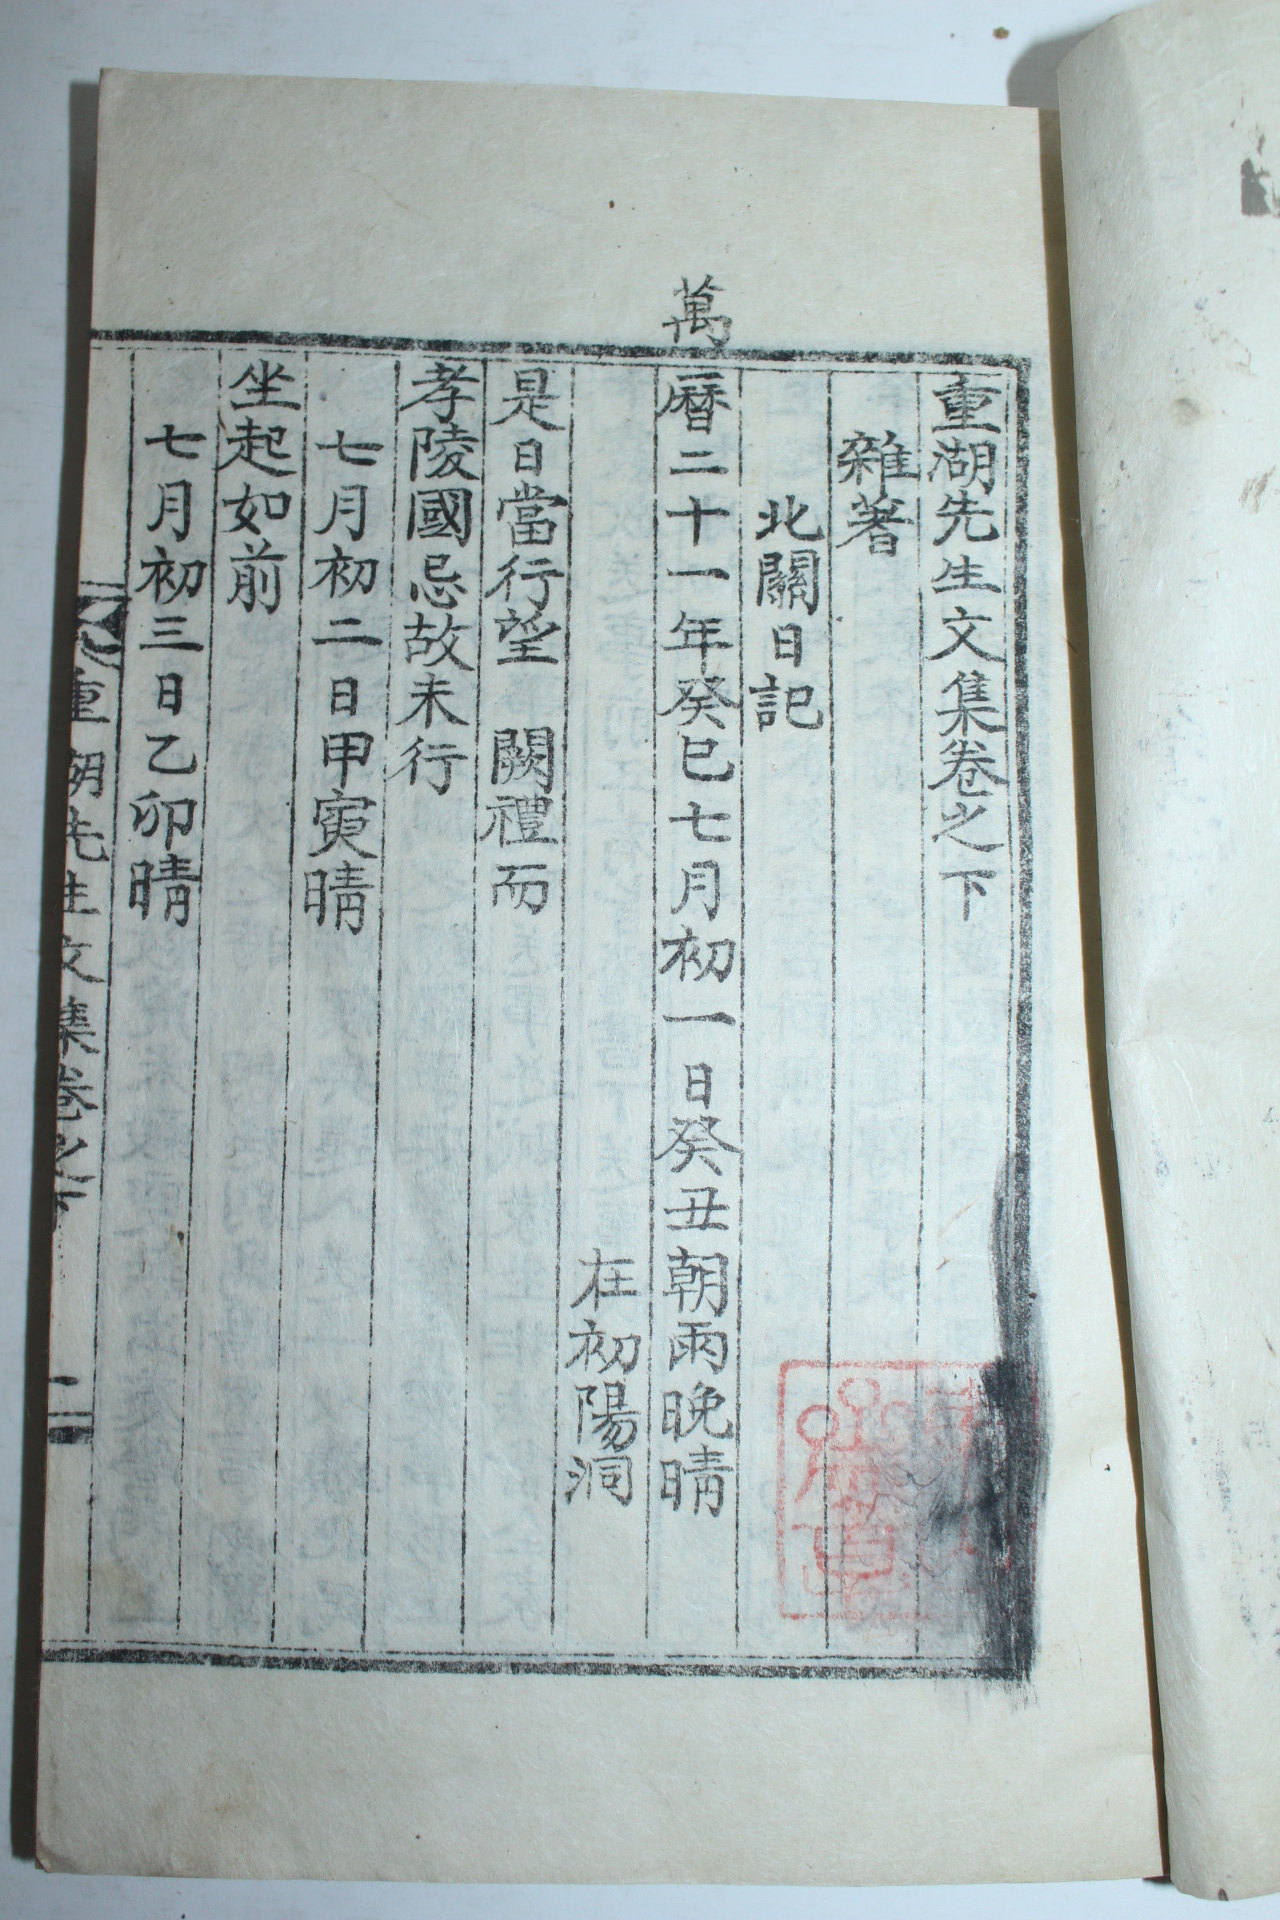 重湖先生文集卷之下
雜著
北關日記
萬曆二十一年癸巳七月初一日癸丑朝雨晩晴
在初陽洞
是日當行望　闕禮而
孝陵國忌故未行
七月初二日甲寅晴
坐起如前
七月初三日乙卯晴
重湖先生文集卷之下
一